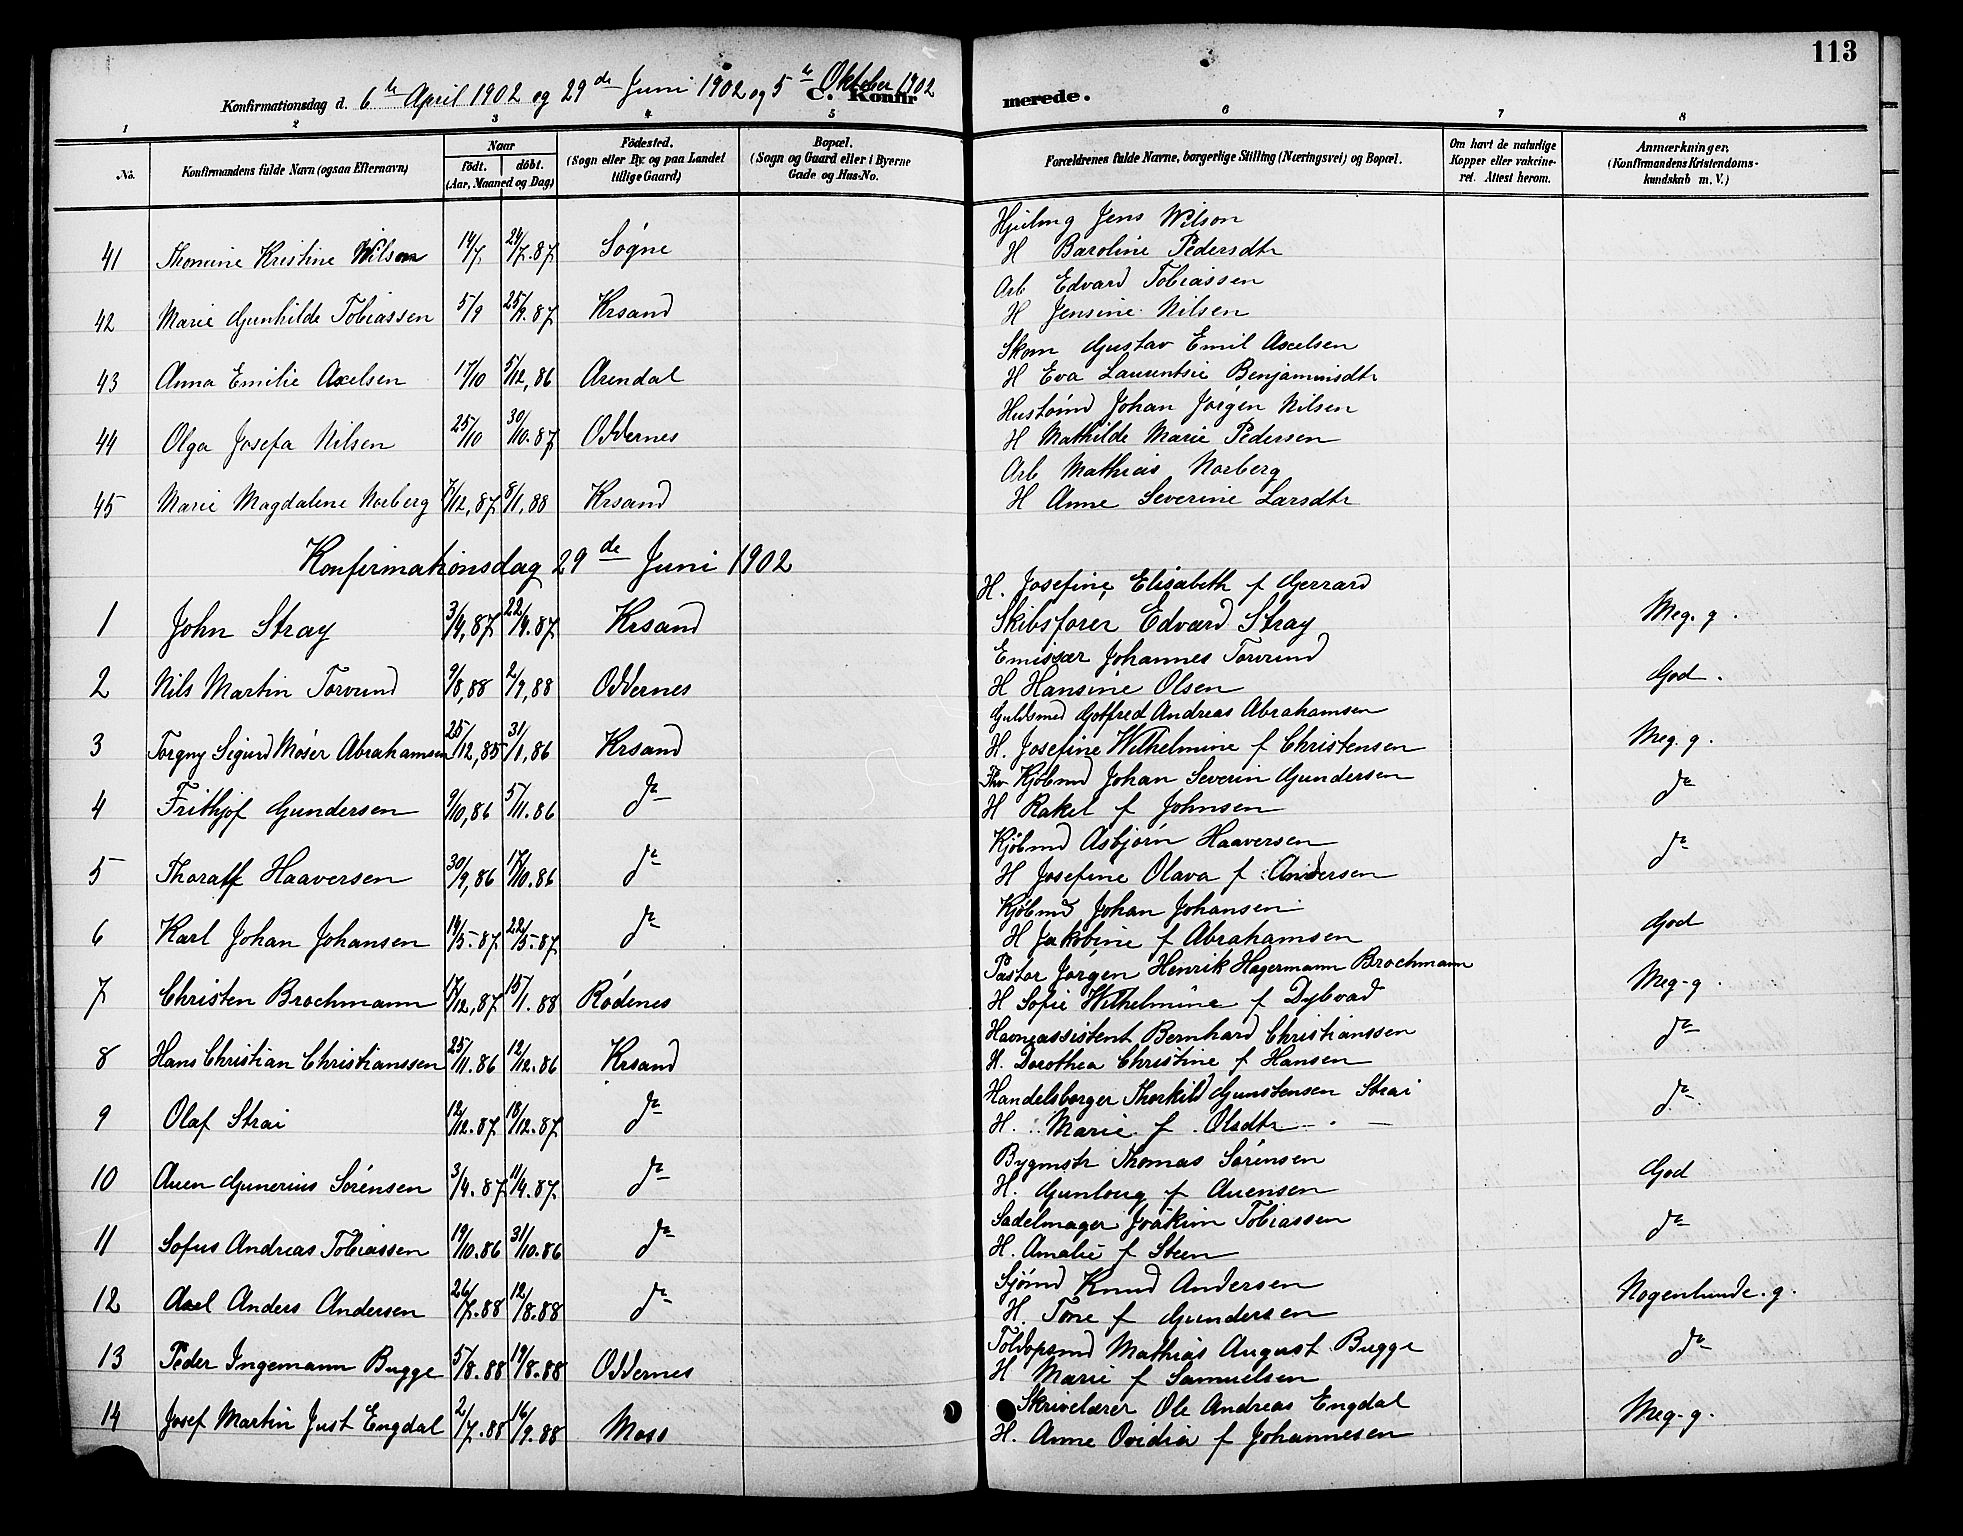 113
Konfirmationsdag d. 6te April 1902 og 29de Juni 1902 og 5te Oktober 1902
C. Konfirmerede.
1 2 3 4 5 6 7 8
No. Konfirmandens fulde Navn (ogsaa Efternavn) Naar födt. döbt. (Aar, Maaned og Dag) Födested. (Sogn eller By, og paa Landet tillige Gaard) Bopæl. (Sogn og Gaard eller i Byerne Gade og Hus-No. Forældrenes fulde Navne, borgerlige Stilling (Næringsvei) og Bopæl. Om havt de naturlige Kopper eller vakcineret. Attest herom. Anmærkninger, (Konfirmandens Kristendomskundskab m. V.)
Hjulmg Jens Wilson
41 Thomine Kristine Wilson 14/7 24/7.87 Søgne H Baroline Pedersdtr
Arb Edvard Tobiassen
42 Marie Gunhilde Tobiassen 5/9 25/9.87 Krsand H Jensine Nilsen
Skom Gustav Emil Axelsen
43 Anna Emilie Axelsen 17/10 5/12,86 Arendal H Eva Laurentsie Benjaminsdtr
Hustømd Johan Jørgen Nilsen
44 Olga Josefa Nilsen 25/10 30/10.87 Oddernes H Mathilde Marie Pedersen
Arb Mathias Norberg
45 Marie Magdalene Norberg 7/12,87 8/1,88 Krsand H Anne Severine Larsdtr
Konfirmationsdag 29de Juni 1902
H. Josefine Elisabeth f Gerrard
1 John Stray 3/9,87 22/9.87 Krsand Skibsfører Edvard Stray Meg. g.
Emissær Johannes Torvund
2 Nils Martin Torvund 9/8,88 2/9,88 Oddernes H Hansine Olsen God.
Guldsmed Gotfred Andreas Abrahamsen
3 Torgny Sigurd Moser Abrahamsen 25/12,85 31/1,86 Krsand H. Josefine Wilhelmine f Christensen Meg. g.
Kjøbmd Johan Severin Gundersen
4 Frithjof Gundersen 9/10,86 5/11.86 do H Rakel f Johnsen do
Kjøbmd Asbjørn Haaversen
5 Thoralf Haaversen 30/9,86 17/10.86 do H Josefine Olava f: Andersen do
Kjøbmd Johan Johansen
6 Karl Johan Johansen 14/5-87 22/5-87 do H Jakobine f Abrahamsen God
Pastor Jørgen Henrik Hagermann Brochmann
7 Christen Brochmann 17/12,87 15/1.88 Rødenes H Sofie Wilhelmine f Dybvad Meg-g.
Havneassistent Bernhard Christianssen
8 Hans Christian Christianssen 25/11.86 12/12.86 Krsand H. Dorothea Christine f Hansen do
Handelsborger Thorkild Gunstensen Strai
9 Olaf Strai 12/12.87 18/12.87 do H. Marie f Olsdtr do
Bygmstr Thomas Sørensen
10 Auen Gunerius Sørensen 3/4.87 11/4.87 do H. Gunloug f Auensen God
Sadelmager Joakim Tobiassen
11 Sofus Andreas Tobiassen 19/10.86 31/10.86 do H. Amalie f Steen do
Sjømd Knud Andersen
12 Axel Anders Andersen 26/7.88 12/8.88 do H. Tone f Gundersen Nogenlunde. g.
Toldopsmd Mathias August Bugge
13 Peder Ingemann Bugge 5/8.88 19/8.88 Oddernes H Marie f Samuelsen do
Skrivelærer Ole Andreas Engdal
14 Josef Martin Just Engdal 2/7.88 16/9.88 Moss H. Anne Ovidia f Johannesen Meg-g.